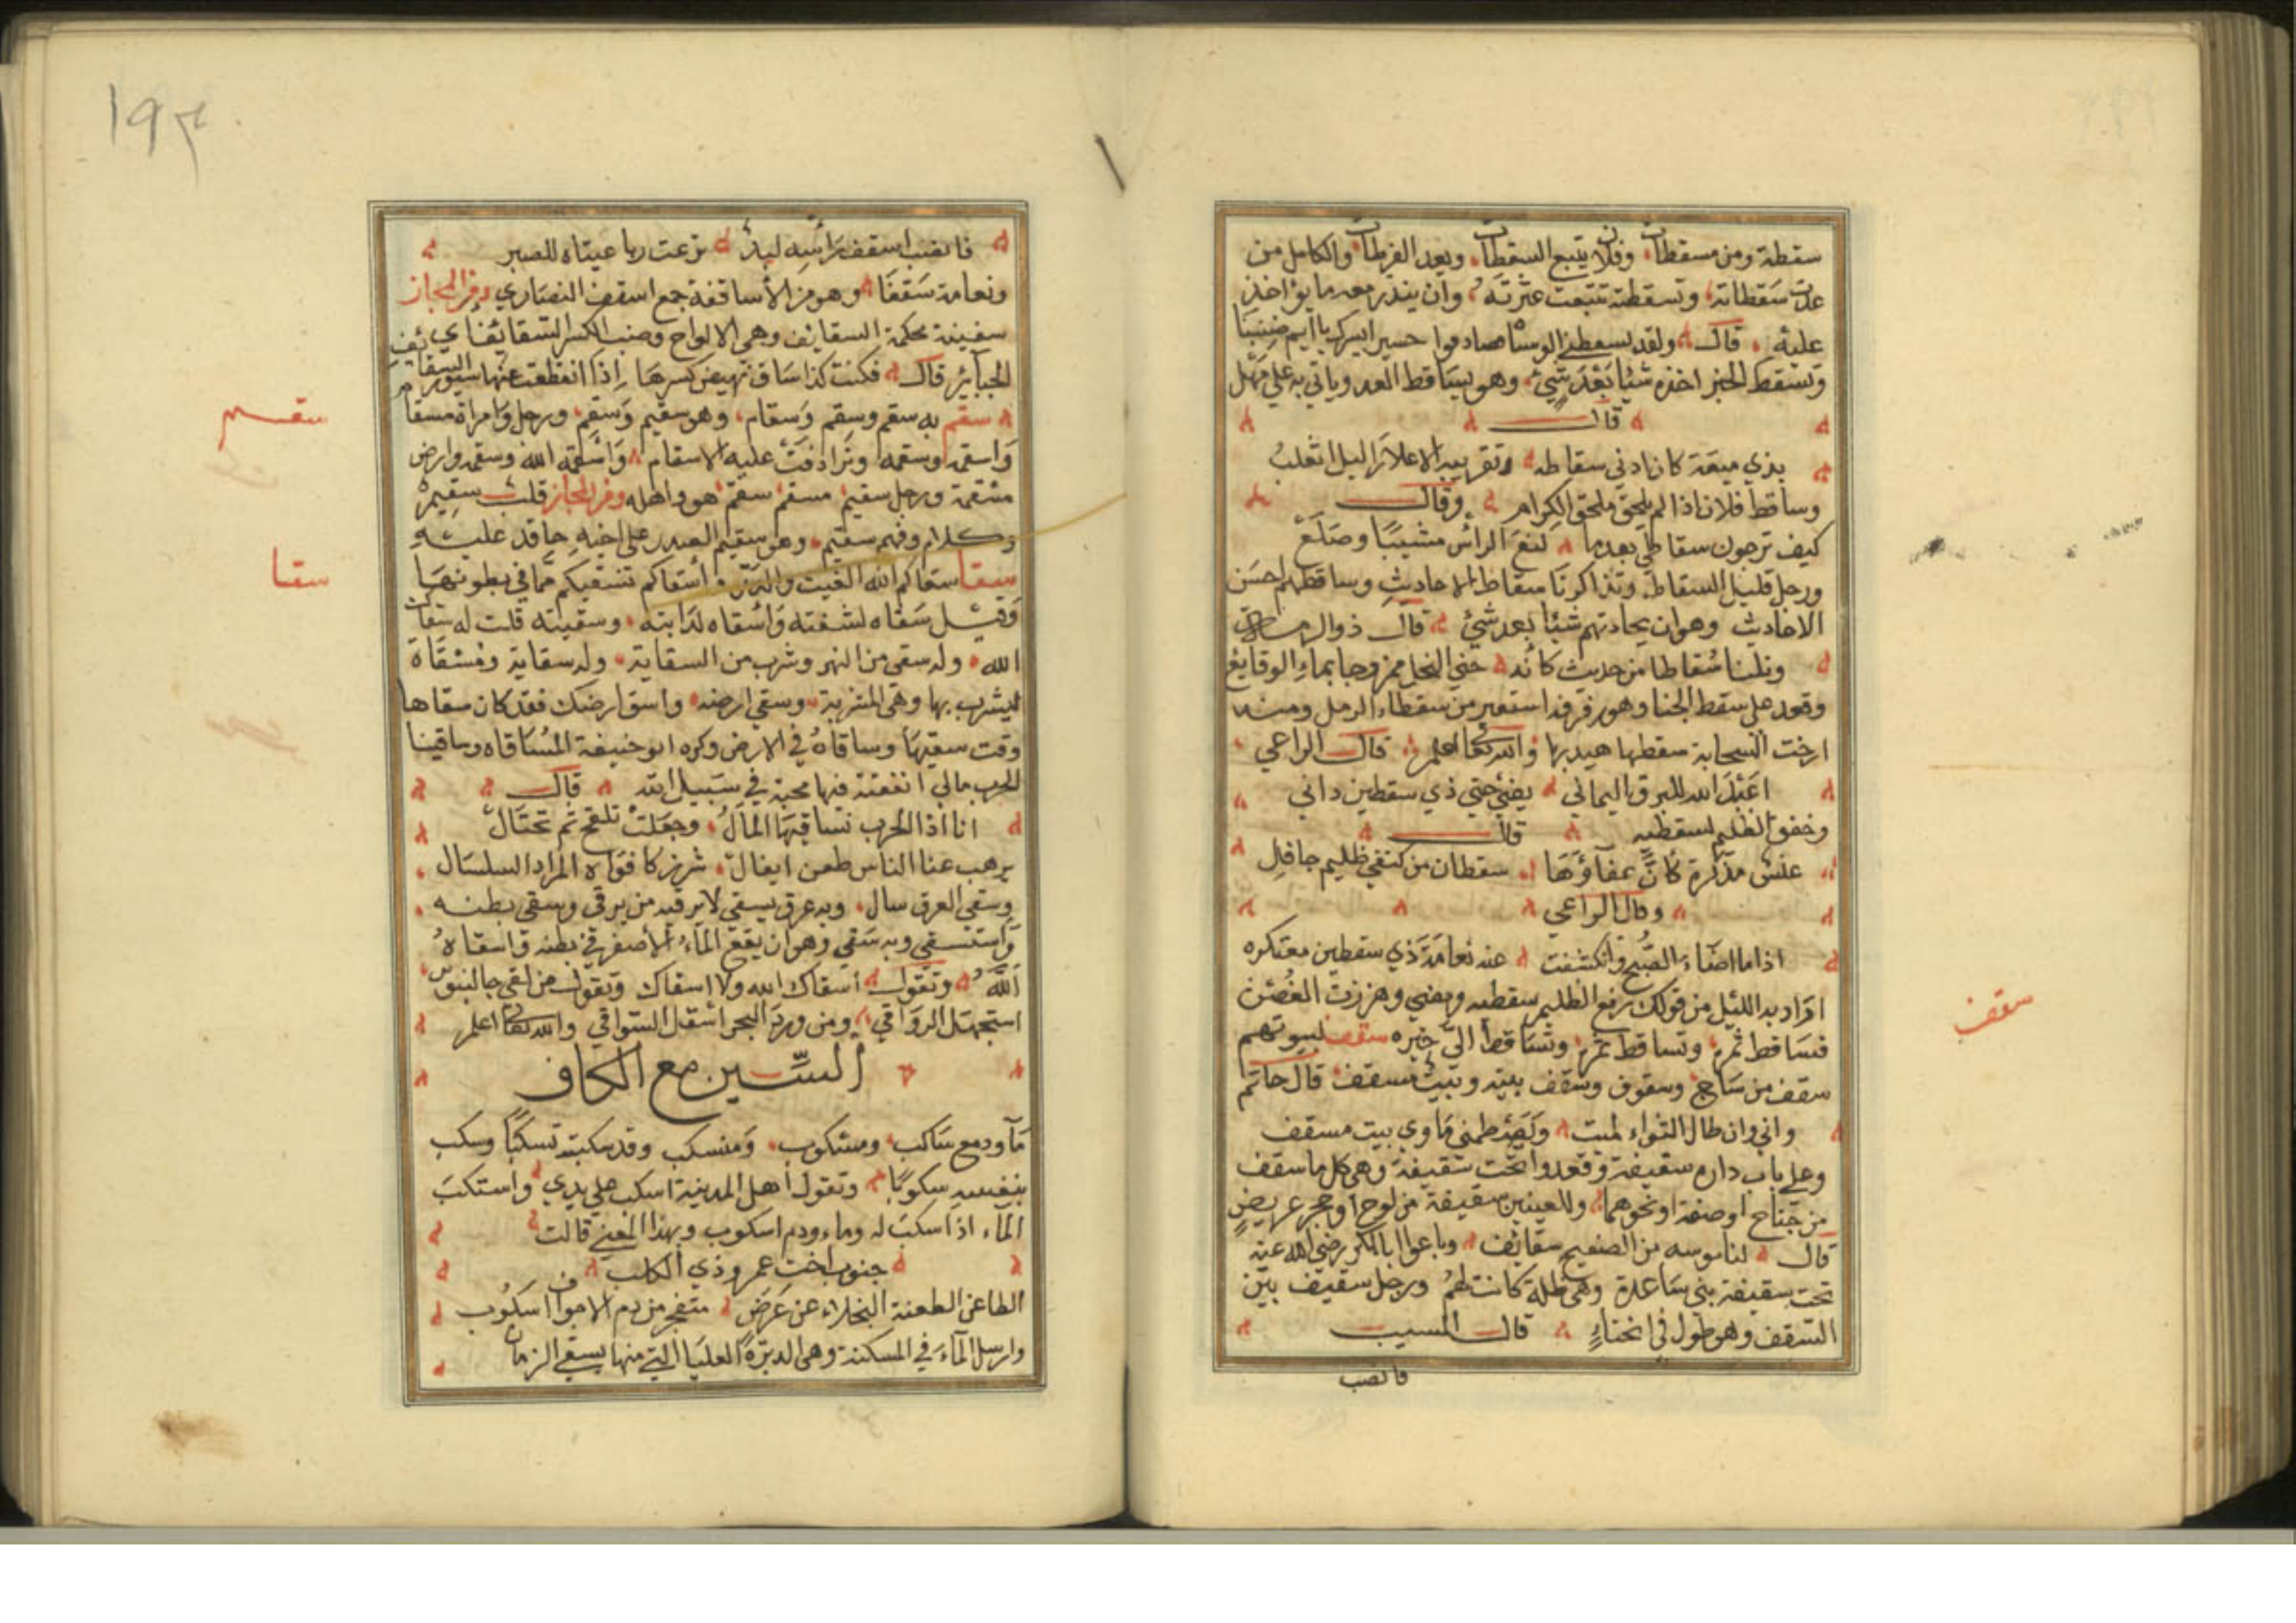 سقطة ومن مسقطات وفلان يتبع السقطات ويعد الفرطات والكامل من
عدت سقطاته وتسقطته تتبعت عثرته وان يندر معه ما يؤاخذ
عليه قال ولقد تسقطني الوشاة فصادفوا حصرا بسرك يا اميم ضنينا
وتسقط الخبز اخذه شيئا بعد شيء وهو يساقط العدو وياتي به على مهل
قال
بذي ميعة كان ادنى سقاطه وتقريبه الاعلا ذاليل اثعلب
وساقط فلان اذا لم يلحق ملحق الكرام وقال
كيف ترجون سقاطي بعدما لفع الراس مشيبا وصلع
ورجل قليل السقاط وتذاكرنا سقاط الاحاديث وساقطهم احسن
الاحاديث وهو ان يحادثهم شيئا بعد شيء قال ذو الرمة
ونلنا سقاطا من حديث كانه جنى النحل ممزوجا بماء الوقايع
وقعود على سقط الخنا وهو رفرفه استعير من سقط الرمل ومنه
ارخت السحابة سقطها هيدبها والله تعا اعلم قال الراعي
اعبد الله للبرق اليماني يضيء حبي ذي سقطين داني
وخفق الظليم بسقطيه قال
عنس مذكرة كان عفاؤها سقطان من كنفي ظليم جافل
وقال الراعي
اذا ما اضاء الصبح وانكشفت عنه نعامة ذي سقطين معتكره
اراد به الليل من قولك رفع الظليم سقطيه ومضى وهززت الغصن
فساقط ثمره وتساقط ثمره وتساقط الي خبره سقف لبيوتهم
سقف من ساج وسقوف وسقف بيته وبيت مسقف قال حاتم
واني وان طال الثواء لميت ويضطمني ماوي بيت مسقف
وعلى باب داره سقيفة وقعدوا تحت سقيفة وهي كل ما سقف
من جناح او صفة او نحوهما وللعينين سقيفة من لوح او حجر عريض
قال لناموسه من الصفيح سقائف وبايعوا ابا بكر رضي الله عنه
تحت سقيفة بني ساعدة وهي ظلة كانت لهم ورجل سقيف بين
السقف وهو طول في انحناء قال المسيب
فانصب
سقف
١٩٣
فانصب اسقف راسه لبد نزعت رباعيتاه للصبر
ونعامة سقفا وهو من الاساقفة جمع اسقف النصاري ومن المجاز
سفينة محكمة السقايف وهي الالواح وضب الكسر السقائف اي
الجبائر قال فكنت كذا ساق تهيض كسرها اذا انقطعت عنها سيور السقائف
سقم به سقم وسقم وسقام وهو سقيم وسقم ورجل وامراة مسقام
واسقمه وسقمه وترادفت عليه الاسقام واسقمه الله وسقمه وارض
مسقمة ورجل سقيم مسقم سقم هو واهله ومن المجاز قلب سقيم
وكلام وفهم سقيم وهو سقيم الصدر على اخيه حاقد عليه
سقا سقاكم الله الغيث والدر واسقاكم نسقيكم مما في بطونها
وقيل سقاه لشفته واسقاه لدابته وسقيته قلت له سقاك
الله وله سقي من النهر وشرب من السقاية وله سقاية ومسقاة
ليشرب بها وهي المشربة وسقى ارضه واسق ارضك فقد كان سقاها
وقت سقيها وساقاه في الارض وكره ابو حنيفة المساقاه وساقينا
الحرب مالي انفقته فيها محبة في سبيل الله قال
انا اذا الحرب نساقيها المال وجعلت تلقح ثم تحتال
يرهب عنا الناس طعن ايغال شزر كافواه المزاد السلسال
وسقى العرق سال وبه عرق يسقي لا يرقيه من يرقي وسقي بطنه
واستسقي وبه سقي وهو ان يقع الماء الاصفر في بطنه واسقاه
الله وتقول اسقاك الله ولا اسقاك وتقول من لقي جالينوس
استجهل الرواقي ومن ورد البحر استقل السواقي والله تعا اعلم
السين مع الكاف
ماء ودمع ساكب ومسكوب ومنسكب وقد سكبته تسكبا وسكب
بنفسه سكوبا وتقول اهل المدينة اسكب على يدي واستكب
الماء اذا سكب له وماء ودم اسكوب وبهذا المعنى قالت
جنوب اخت عمرو ذي الكلب
الطاعن الطعنة النجلاء عن عرض مثعنجر من دم الاجواف اسكوب
وارسل الماء في المسكبة وهي الدبرة العليا التي منها يسقي الزمان
سقم
سقا